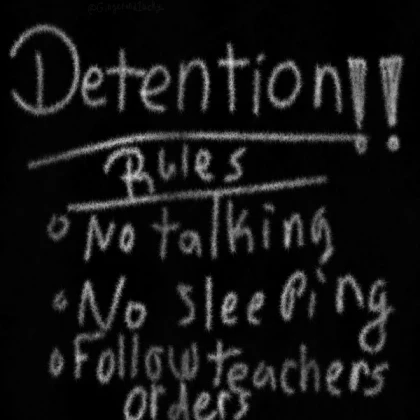 Detention!!
Rules
o No talking
o No sleeping
o Follow teachers
orders